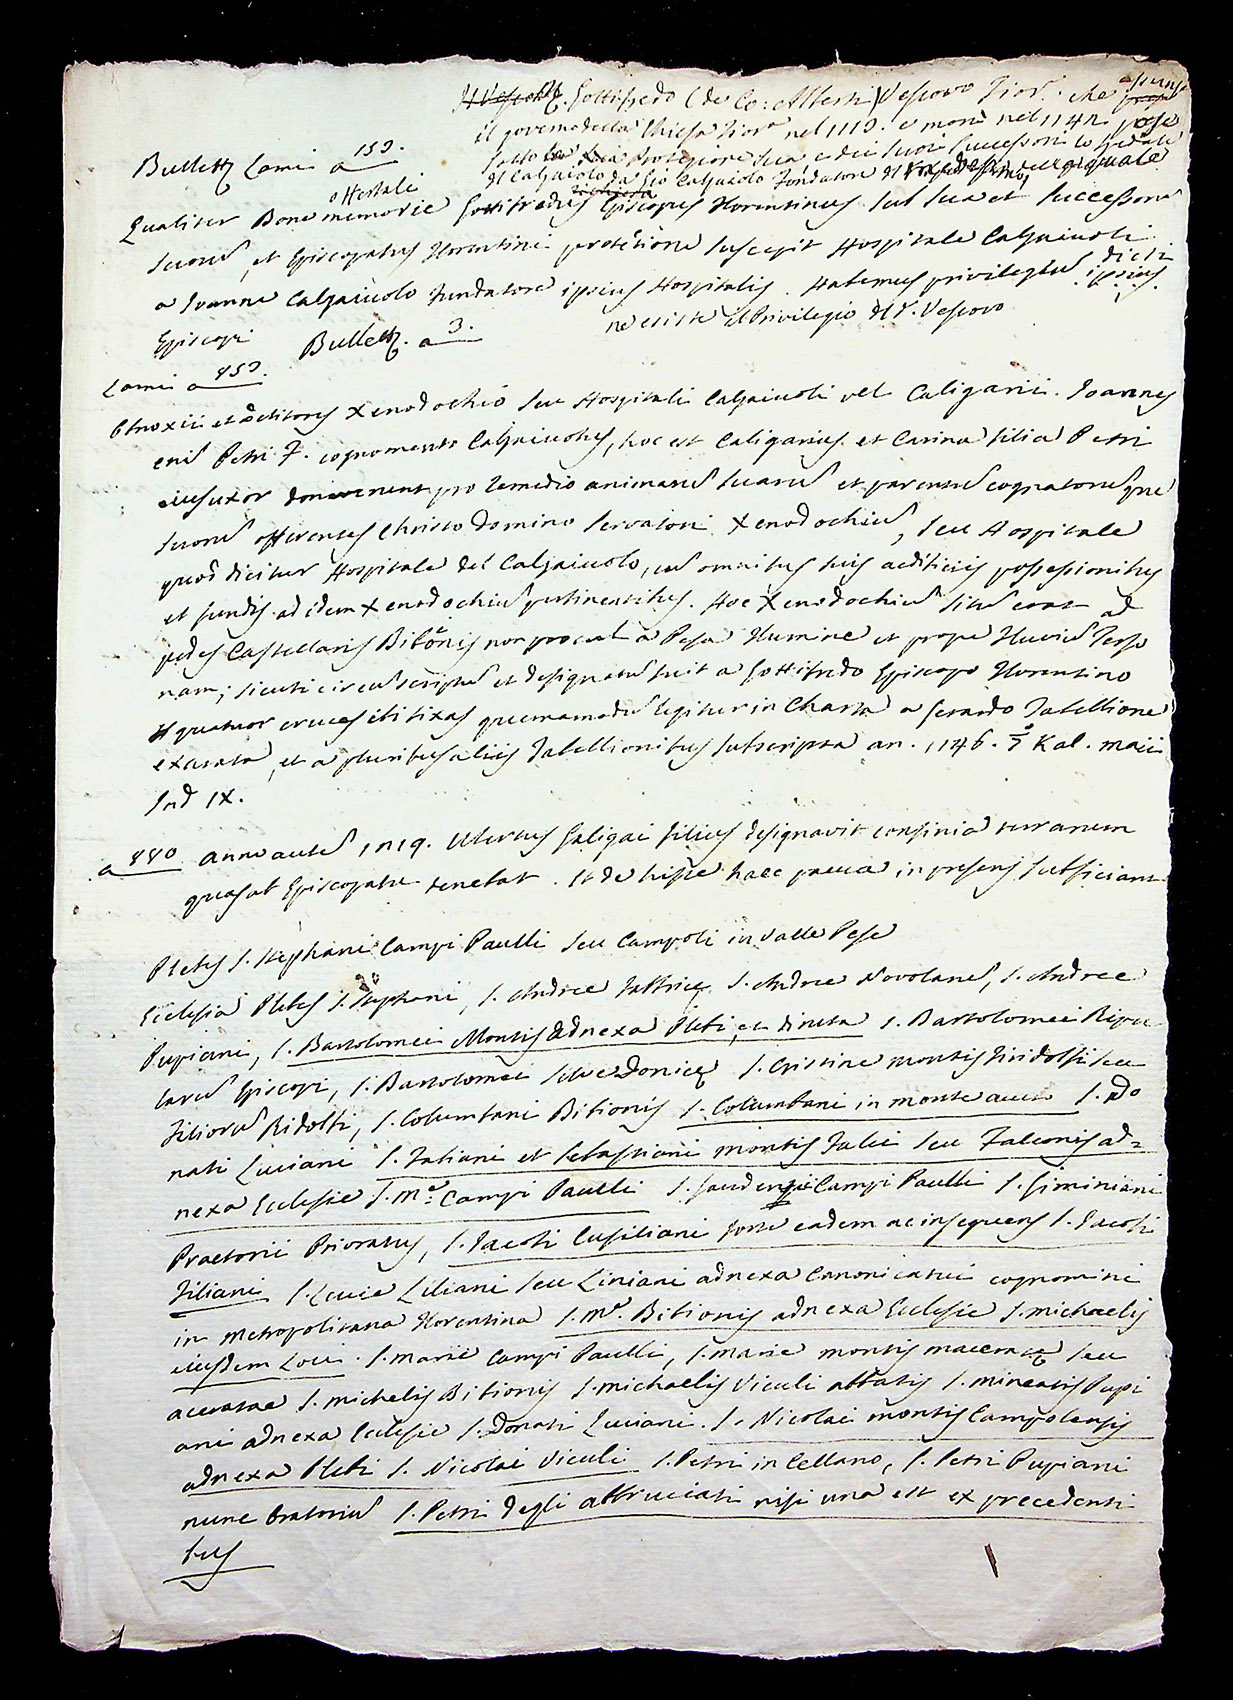 Gottifredo (de Co: Alberti) Vescovo Fior.º che assunse
il governo della Chiesa Fiorª nel 1113. e morì nel 1142. pose
sotto la sua protezione sua e dei suoi successori lo Spedale
del Calzaiuolo da Gio Calzaiuolo Fondatore
Bullett. Lami a 153.
o Hestali
Qualiter Bone memorie Gottifredus Episcopus Florentinus sub sua et successorũ
suorũ, et Episcopatus Florentini protetione suscepit Hospitale Calzaiuoli
a Joanne Calzaiuolo Fundatore ipsius Hospitalis. Habemus privilegiũ dicti
Episcopi Bullett. a 3. ne esiste il Privilegio del d. Vescovo
Lami a 853.
Obnoxii et debitores Xenodochio seu Hospitali Calzaiuoli vel Caligarii. Joannes
enĩ Petri F. cognomento Calzaiuolus, hoc est Caligarius et Carina filia Petri
eius uxor pro remedio animarũ suarũ et parentũ cognatorũque
suorũ offerentes Christo Domino Servatori Xenodochiũ, seu Hospitale
quod dicitur Hospitale del Calzaiuolo, cũ omnibus suis aedificiis possessionibus
et fundis ad idem Xenodochiũ pertinentibus. Hoc Xenodochiũ sitũ erat ad
pedes Castellaris Bibõnis non procul a Pesa Flumine et prope Fluviũ Terzo
nam; sicuti circũscriptũ et designatũ fuit a Gottifredo Episcopo Florentino
quatuor cruces ibi fixas quemamodũ legitur in Charta a Gerardo Tabellione
exarata, et a pluribus aliis Tabellionibus subscripta an. 1146. Kal. Maii
Ind IX.
a 880 Anno autẽ 1219. Ulertus Galigai filius designavit confinia terrarum
quas ab Episcopatu tenebat. Et de hisce haec pauca in presens sufficiant
Plebes S. Stephani Campi Paulli seu Campoli in Valle Pese
Ecclesia Plebes S. Stephani, S. Andree Fabrice, S. Andree Novolanẽ, S. Andree
Pupiani, S. Bartolomei Montis adnexa Plebi, et diruta S. Bartolomei Ripu
larũ Episcopi, S. Bartolomei Silve Donice S. Cristine Montis Firidolfi seu
Filiorũ Ridolfi, S. Columbani Bibionis S. Columbani in monte S. Do
nati Luciani S. Fabiani et Sebastiani montis Falci seu Falconis ad=
nexa Ecclesie S. Mª Campi Paulli S. Gaudenzii Campi Paulli S. Giminiani
Praetorii Prioratus, S. Jacobi Cusiliani forte eadem ac insequens S. Jacobi
Filiani S. Lucie Liliani seu Liniani adnexa Canonicatui cognomini
in Metropolitana Florentina S. Mª. Bibionis adnexa Ecclesie S. Michaelis
eiusdem Loci. S. Marie Campi Paulli, S. Marie montis macerate seu
aceratae S. Michelis Bibionis S. Michaelis Viculi abbatis S. Miniatis Pupi
ani adnexa Ecclesie S. Donati Luciani. S. Nicolai montis Campolensis
adnexa Plebi S. Nicolai Viculi S. Petri in Cellano, S. Petri Pupiani
nunc Oratoriũ S. Petri degli abbruciati nisi una est ex precedenti
bus